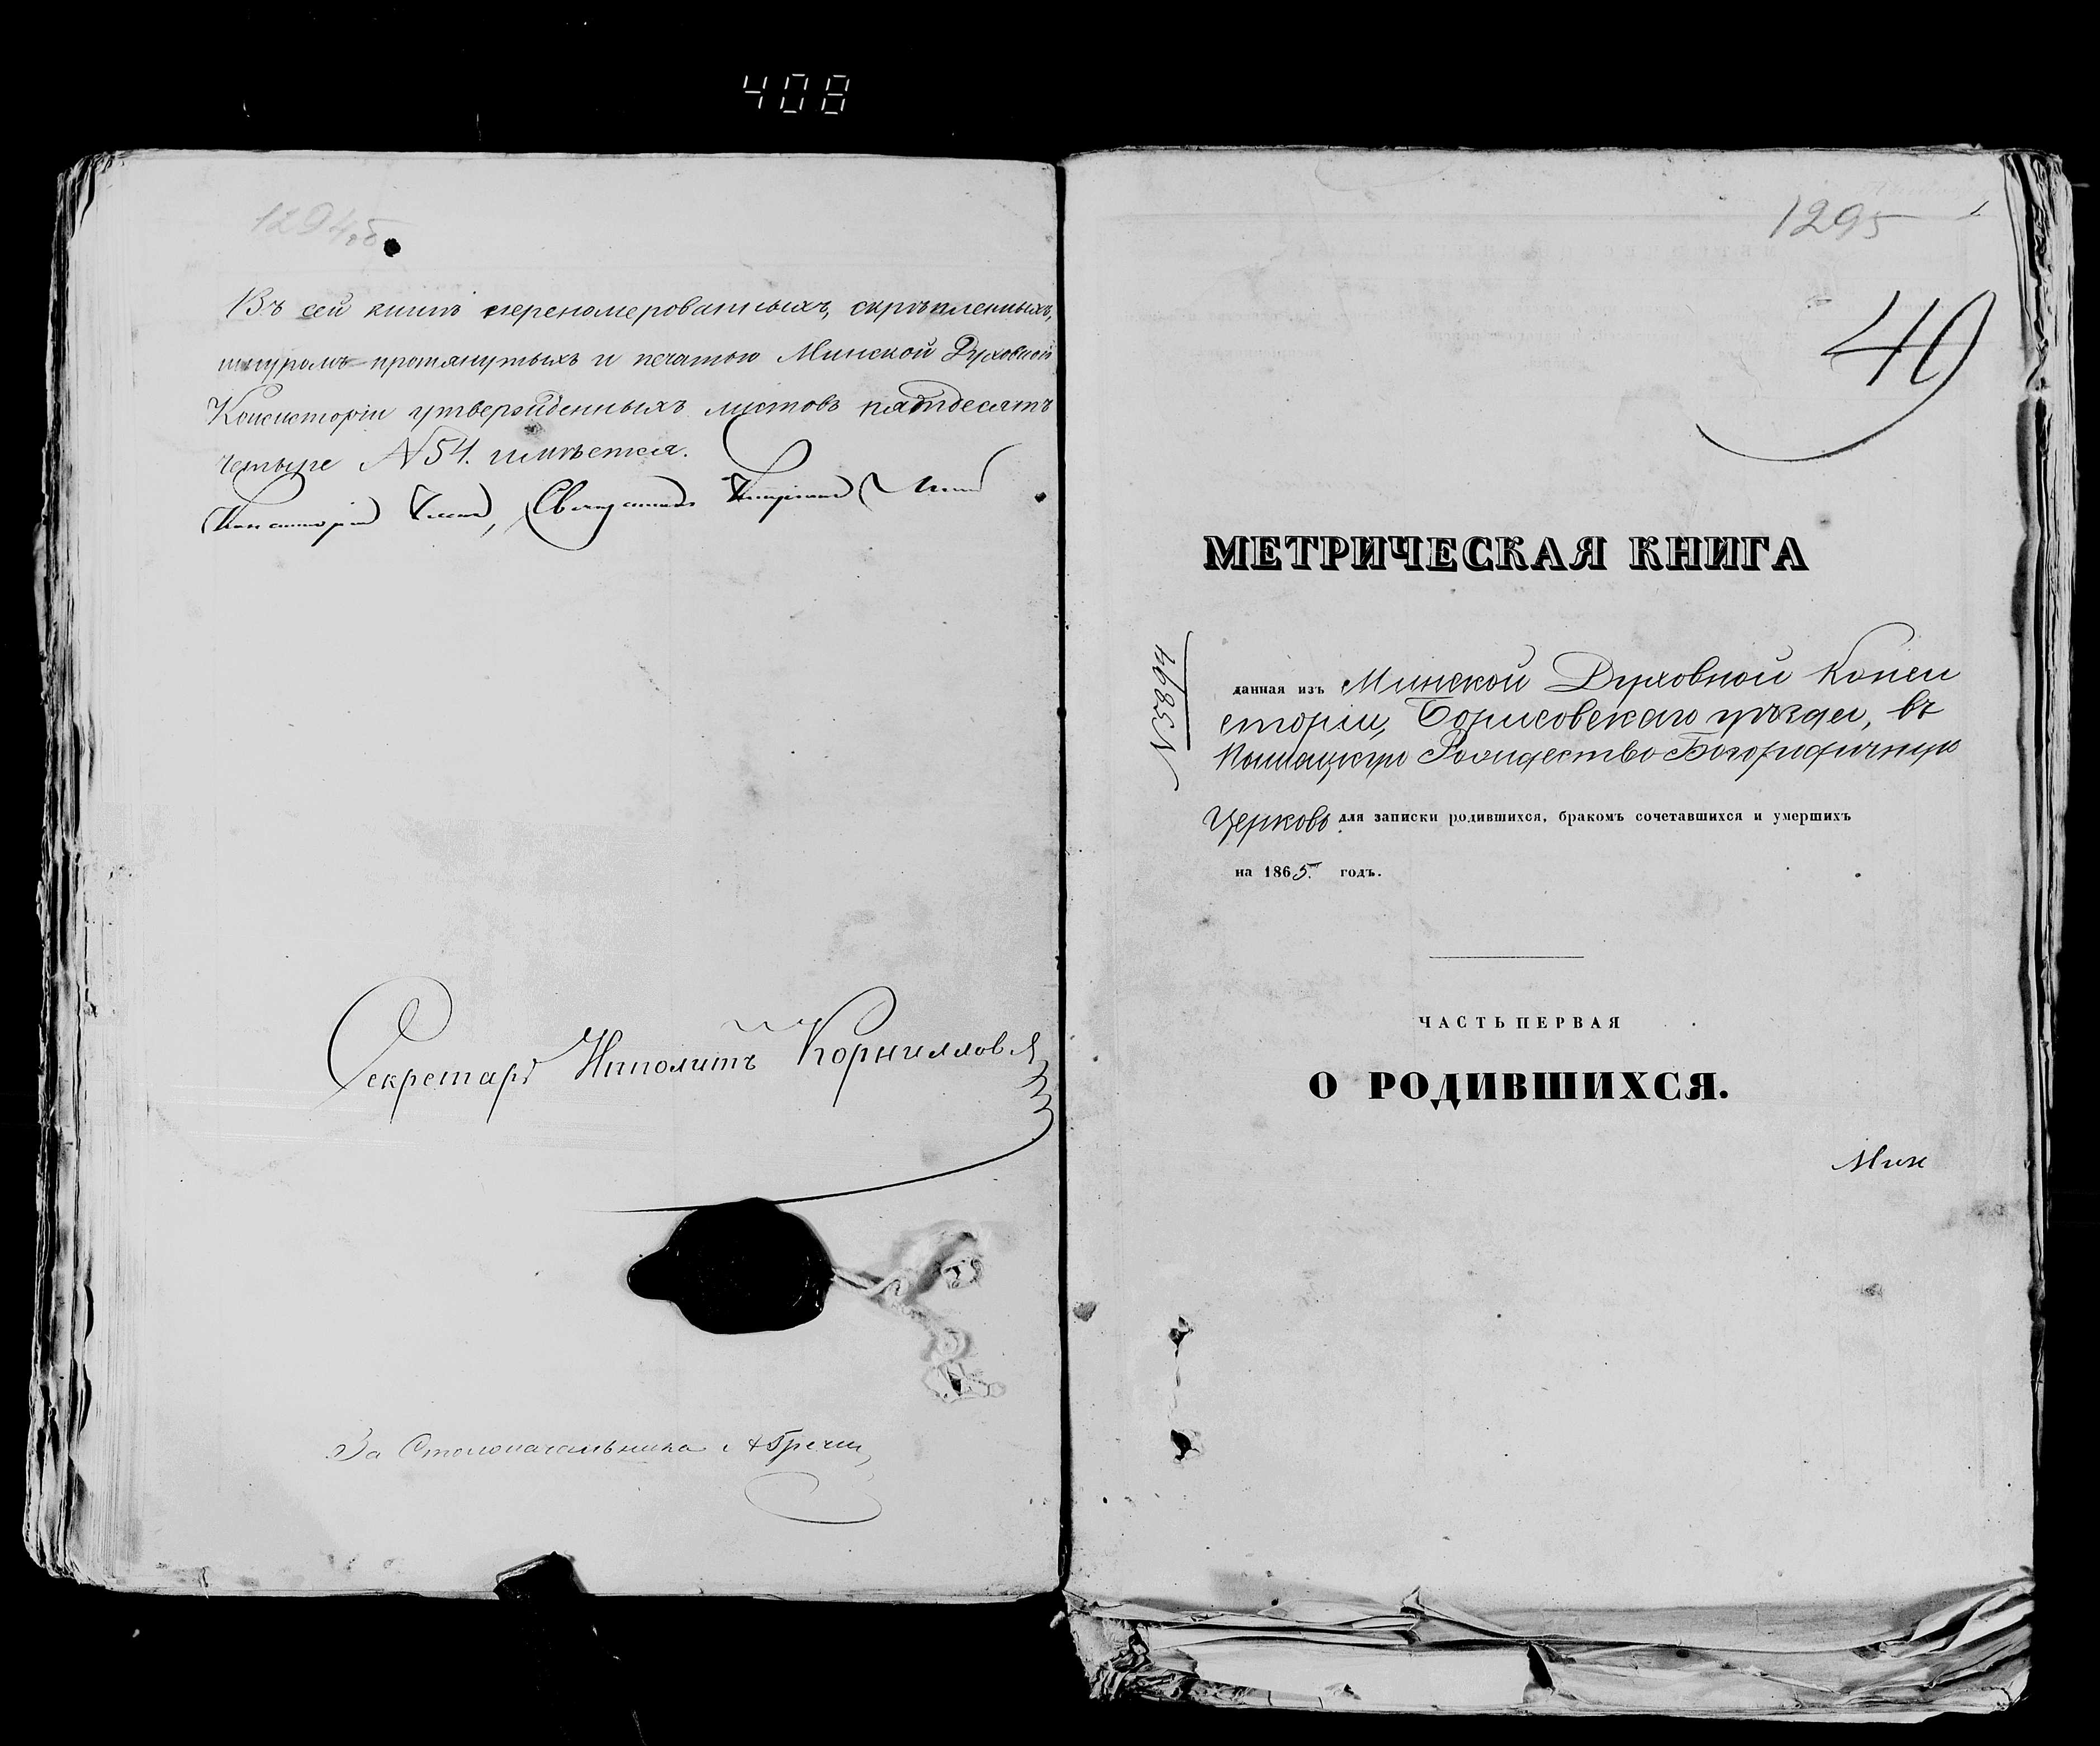 408
1294об
Въ сей книгѣ перенумерованныхъ, скрѣпленныхъ,
шнуромъ протянутыхъ и печатью Минской Духовной
Консисторіи утвержденныхъ листовъ пятьдесятъ
четыре №54. имѣется.
Консисторіи Членъ, Священникъ
Секретарь Ипполитъ Корниллов
За Столоначальника
1295
1
40
МЕТРИЧЕСКАЯ КНИГА
№5894
данная изъ Минской Духовной Конси
сторіи, Борисовскаго уѣзда, въ
Рождество-Богородичную
Церковь для записки родившихся, бракомъ сочетавшихся и умершихъ
на 1865 годъ.
ЧАСТЬ ПЕРВАЯ
О РОДИВШИХСЯ.
Мин